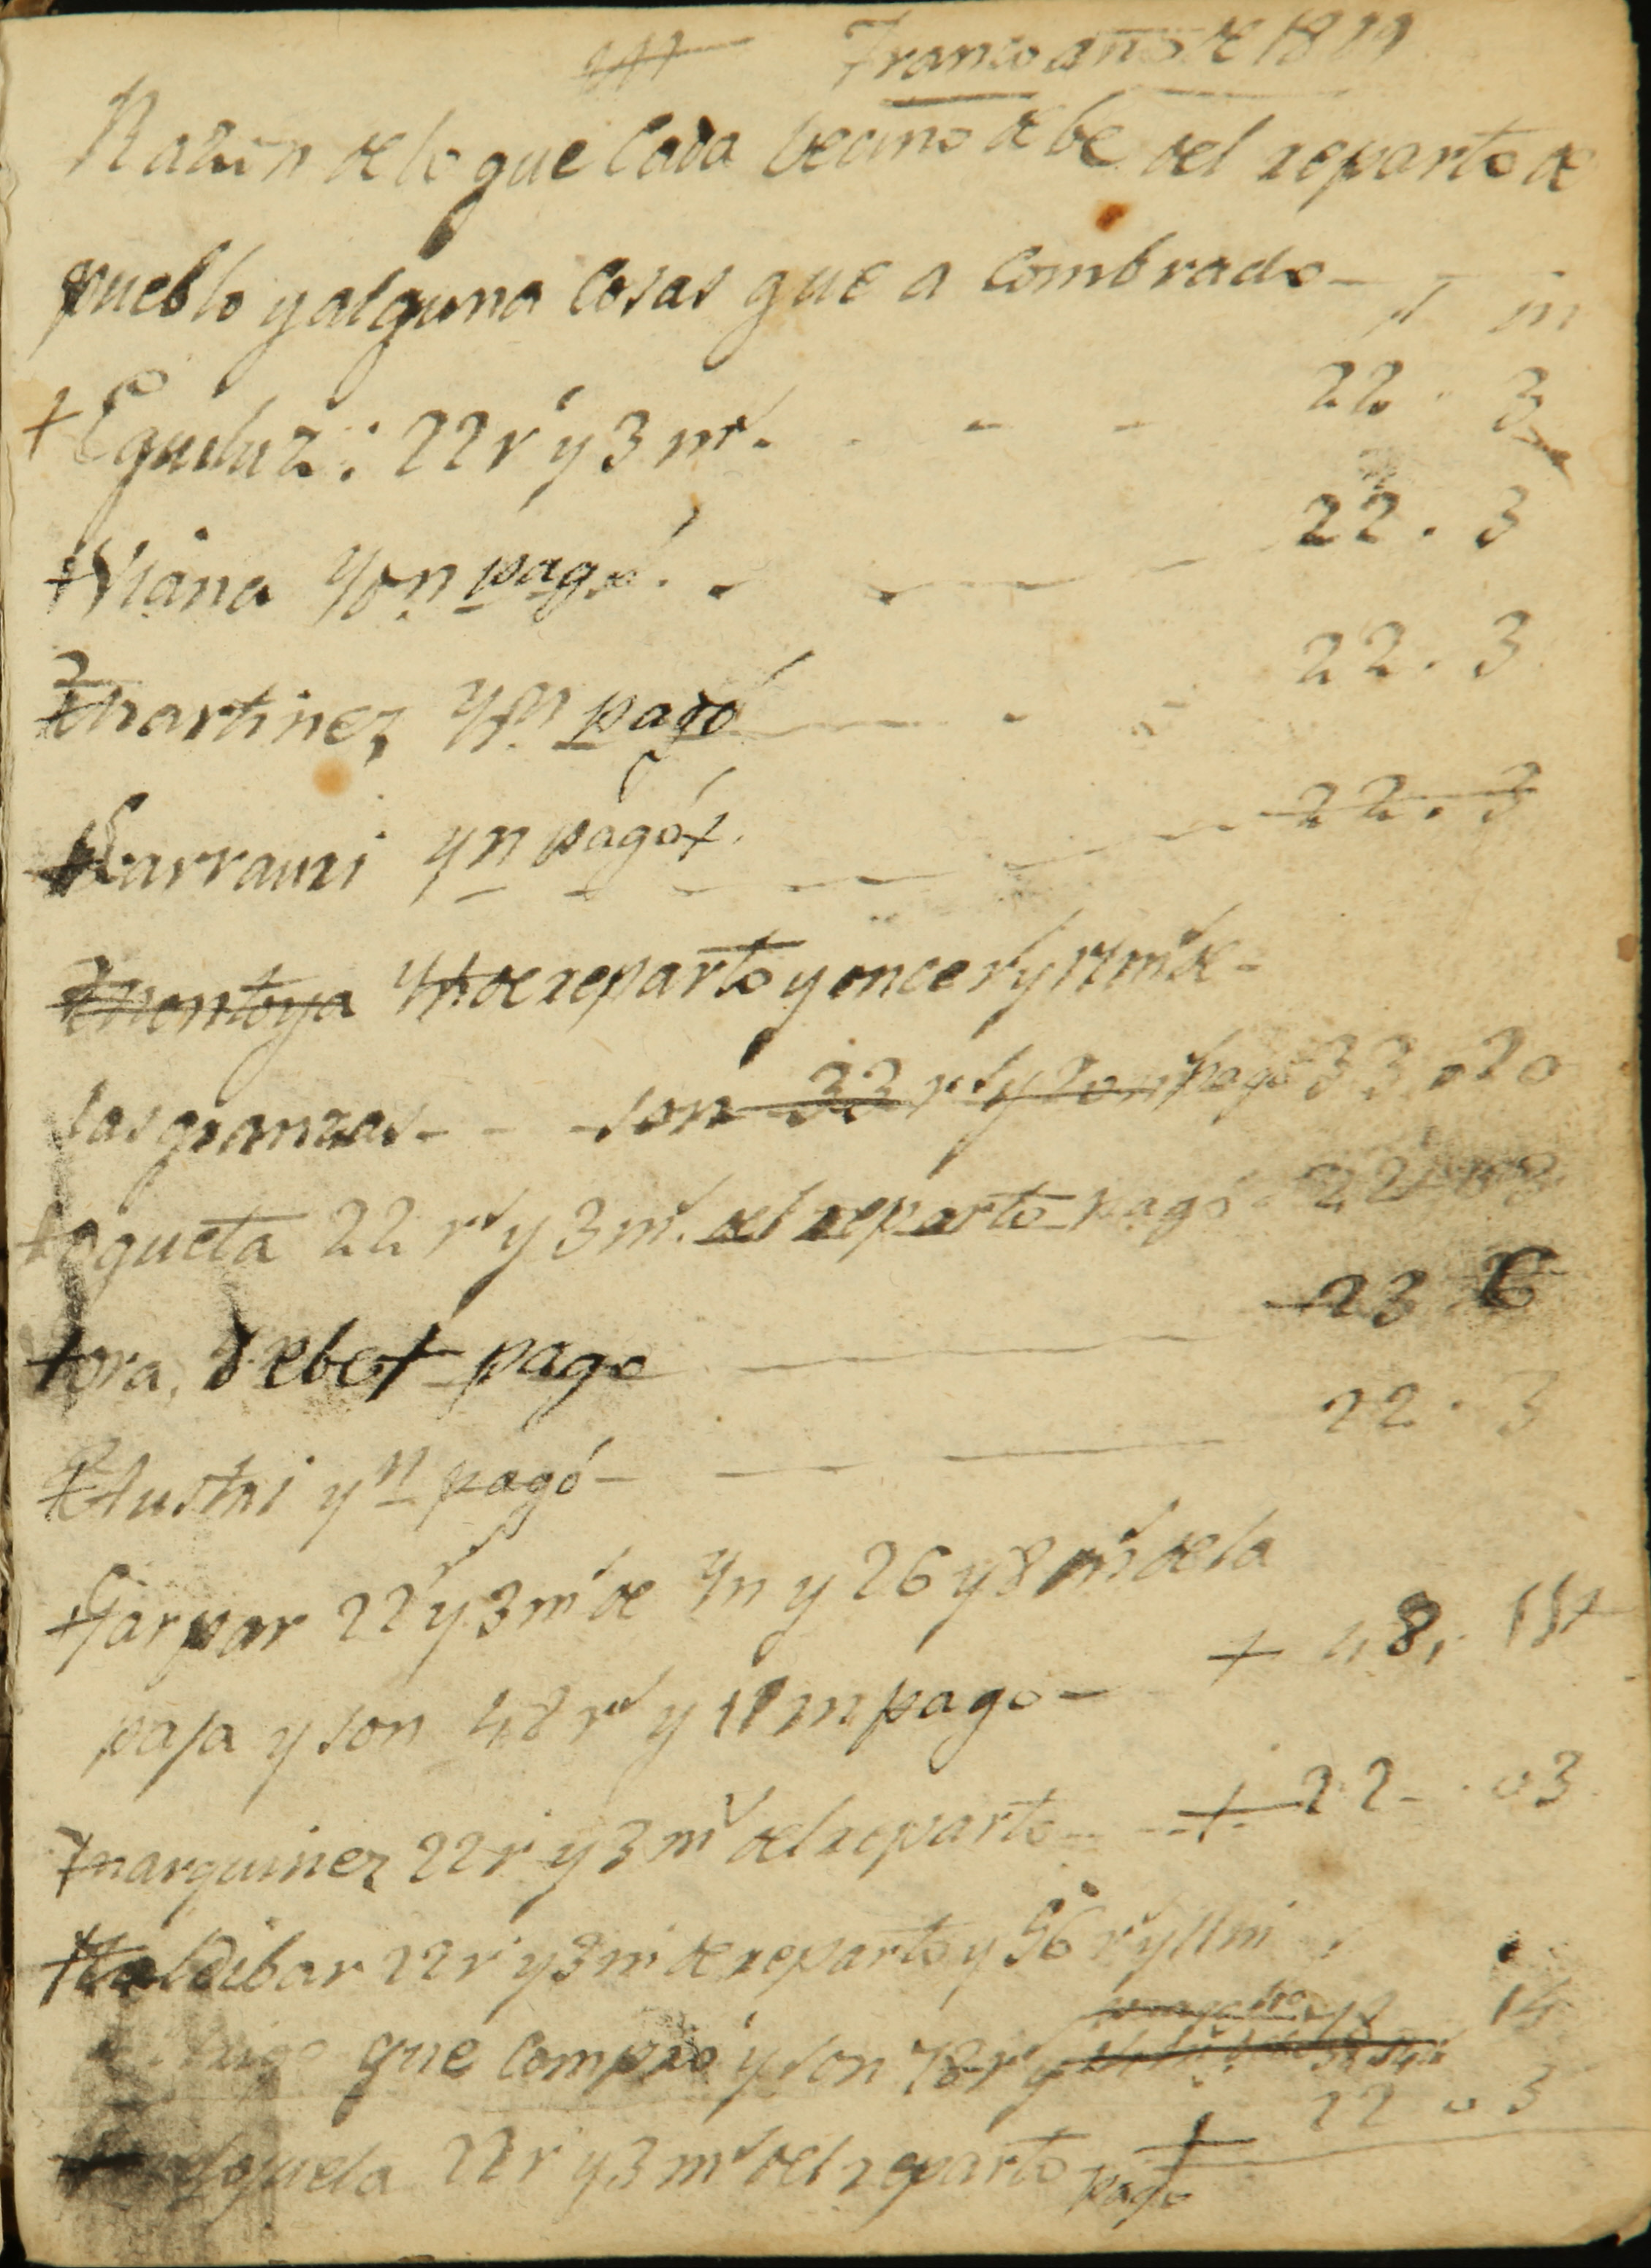 Franco año de 1829
Razon de lo que Cada becino debe del reparto de
pueblo y alguna Cosas que a Combrado
r m
+ Eguiluz: 22 r y 3 mrs. 22 . 3
+ Viana Yn pagó. 22 . 3
+ martinez Yn pagó 22 . 3
+ Larrauri yn pagó+. 22 . 3
+ montoya Yn de reparto y once rs y 17 mrs de
las granzas - - son 33 rs y 20 m pagó 33 . 20
+ ogueta 22 rs y 3 ms. del reparto pagó 22 . 03
+ ora, debe + pago 23 . 6
+ Austri yn pagó 22 . 3
+ Gaspar 22 r y 3 ms de Yn y 26 y 8 ms de la
paja y son 48 rs y 11 m pago + 48, 11+
+ marquinez 22 r y 3 ms del reparto + 22 . 03
+ Zaldibar 22 r y 3 m de reparto y 56 rs y 11 m
que Compró y son 78 r y 14
22 r y 3 ms del reparto pagó + 22 . 03